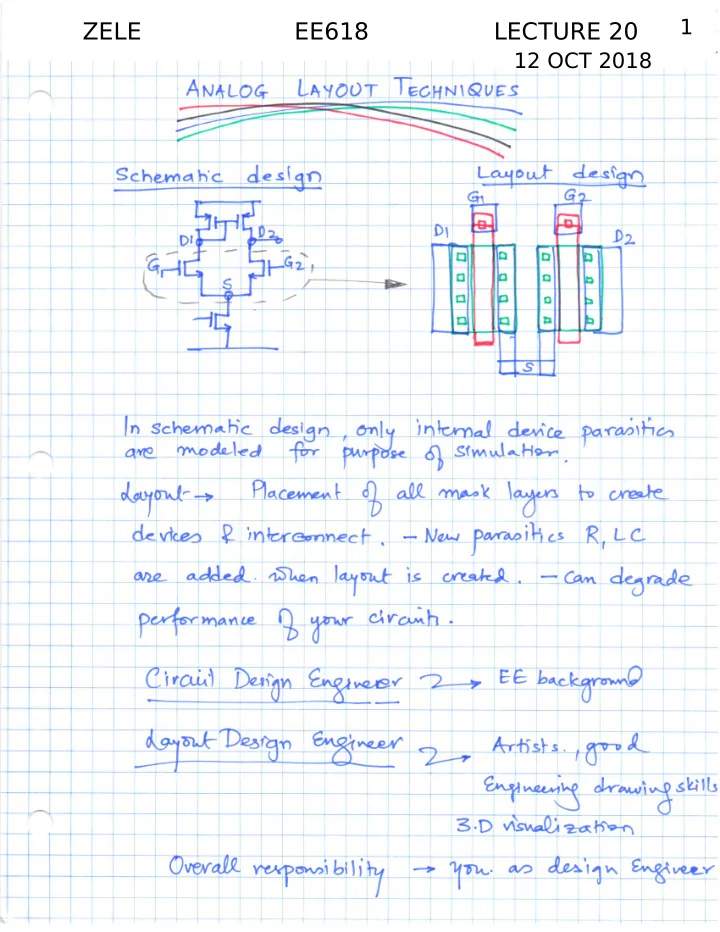 ZELE EE618 LECTURE 20 1
12 OCT 2018
ANALOG LAYOUT TECHNIQUES
Schematic design
Layout design
G1 G2
D1 D2
D1 D2
G1 G2
S
S
In schematic design, only internal device parasitics
are modeled for purpose of simulation.
Layout → Placement of all mask layers to create
devices & interconnect. – New parasitics R, LC
are added. when layout is created. – can degrade
performance of your circuits.
Circuit Design Engineer → EE background
Layout Design Engineer → Artists., good
Engineering drawing skills
3.D visualization
Overall responsibility → you. as design Engineer